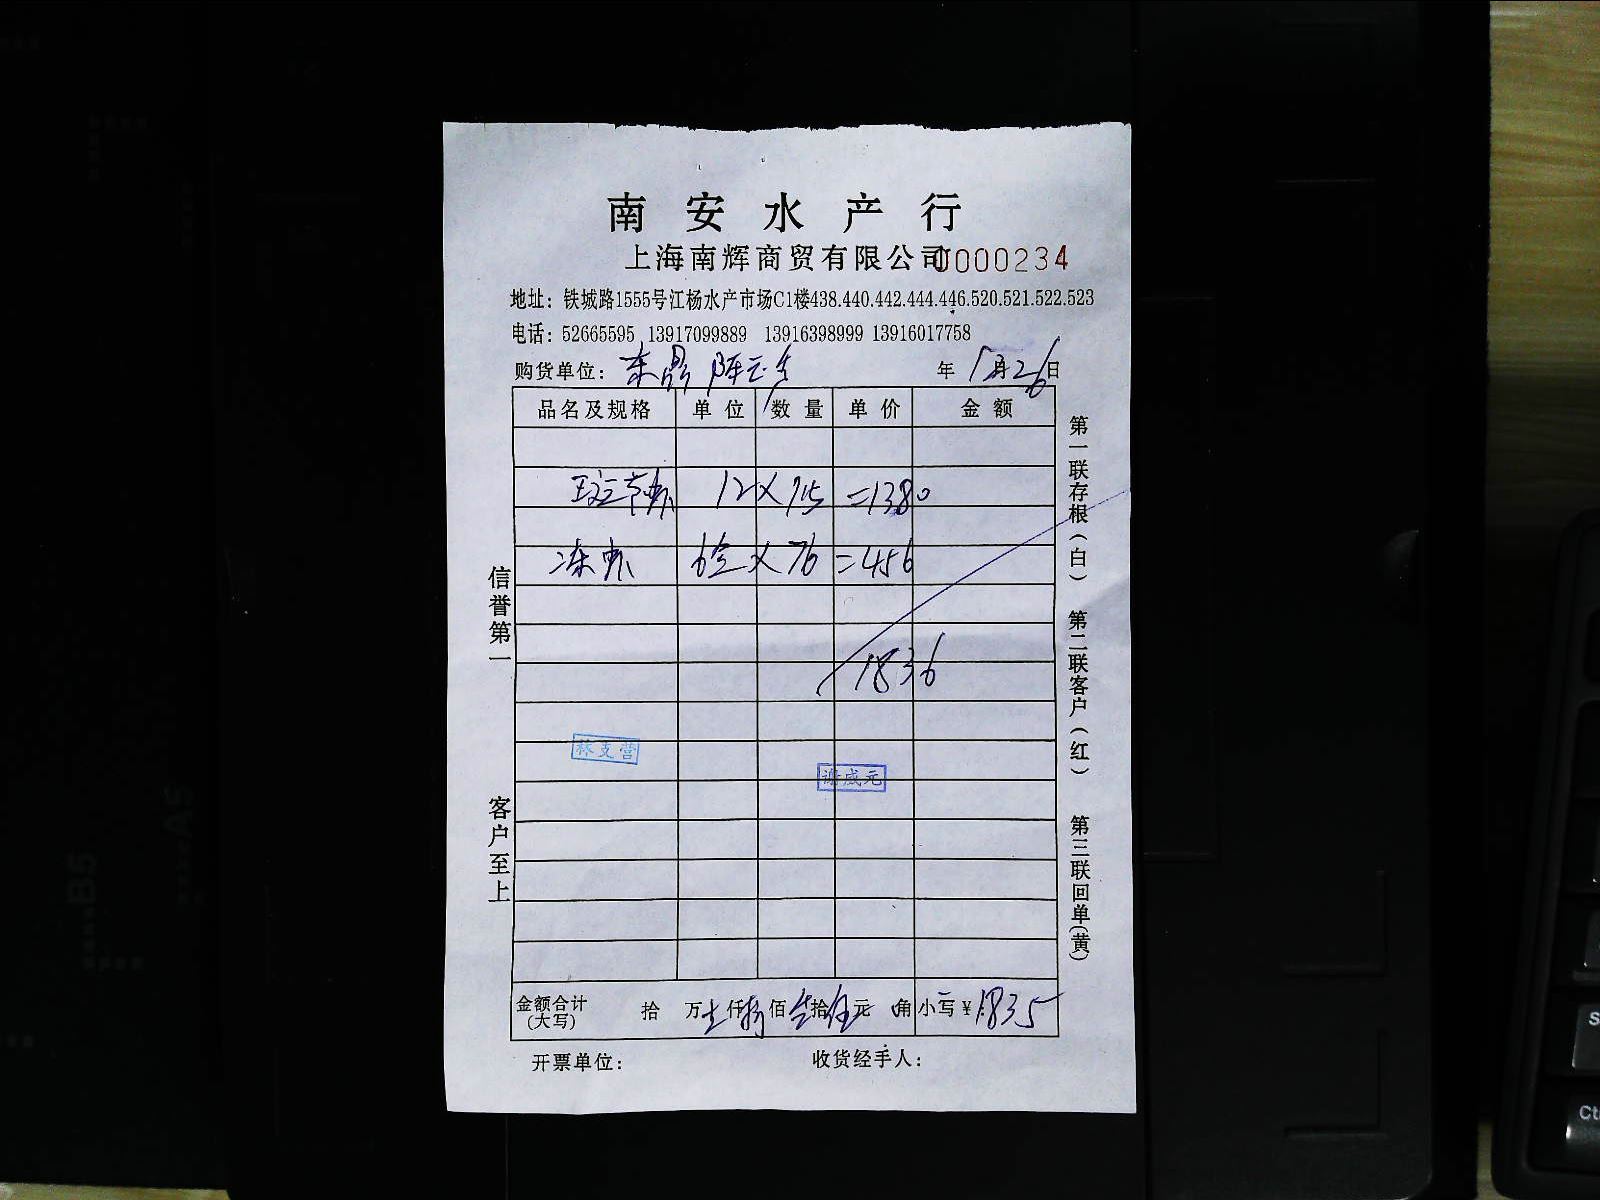 南安水产行
上海南辉商贸有限公司 0000234
地址：铁城路1555号江杨水产市场C1楼438.440.442.444.446.520.521.522.523
电话：52665595 13917099889 13916398999 13916017758
购货单位： 年 1月26日
品名及规格 单位 数量 单价 金额
斑节虾 12 × 115 =1380
冻虾 6盒 × 76 =456
1836
林支营
谢成元
金额合计 拾 万 仟 佰 拾 元 角 小写￥1835
(大写)
开票单位： 收货经手人：
信誉第一
客户至上
第一联存根(白)
第二联客户(红)
第三联回单(黄)
B5
A5